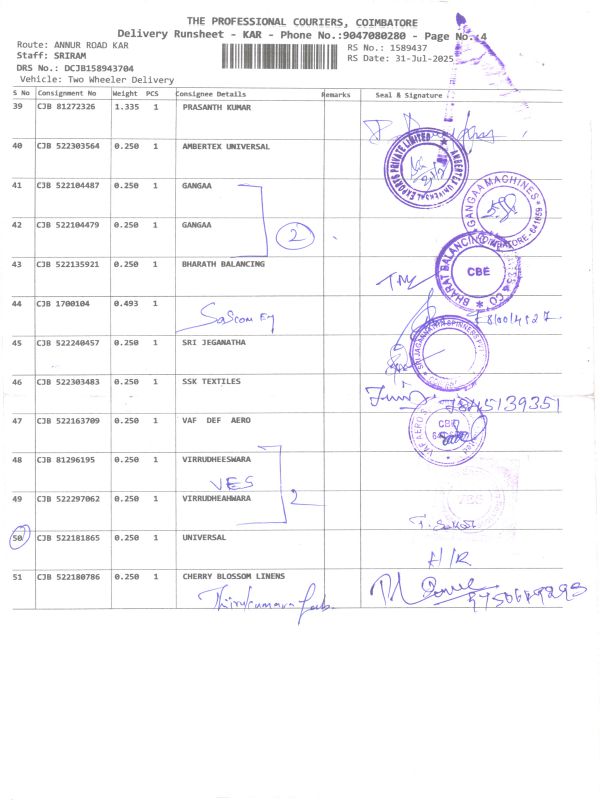 THE PROFESSIONAL COURIERS, COIMBATORE
Delivery Runsheet - KAR - Phone No.:9047080280 - Page No.:4
Route: ANNUR ROAD KAR
RS No.: 1589437
Staff: SRIRAM
RS Date: 31-Jul-2025
DRS No.: DCJB158943704
Vehicle: Two Wheeler Delivery
S No Consignment No Weight PCS Consignee Details Remarks Seal & Signature
39 CJB 81272326 1.335 1 PRASANTH KUMAR
40 CJB 522303564 0.250 1 AMBERTEX UNIVERSAL
41 CJB 522104487 0.250 1 GANGAA
42 CJB 522104479 0.250 1 GANGAA
2
GANGAA MACHINES
43 CJB 522135921 0.250 1 BHARATH BALANCING
BHARAT BALANCING & CO
CBE
44 CJB 1700104 0.493 1
45 CJB 522240457 0.250 1 SRI JEGANATHA
46 CJB 522303483 0.250 1 SSK TEXTILES
7845139351
47 CJB 522163709 0.250 1 VAF DEF AERO
CBE
48 CJB 81296195 0.250 1 VIRRUDHEESWARA
VES
2
49 CJB 522297062 0.250 1 VIRRUDHEAHWARA
50 CJB 522181865 0.250 1 UNIVERSAL
51 CJB 522180786 0.250 1 CHERRY BLOSSOM LINENS